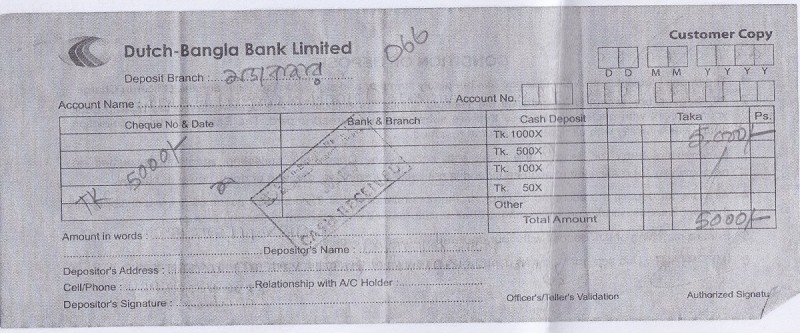 Customer Copy
Dutch-Bangla Bank Limited
066
Deposit Branch :
D D M M Y Y Y Y
Account Name : Account No.
Cheque No & Date Bank & Branch Cash Deposit Taka Ps.
Tk. 1000X 5000/-
Tk. 500X
TK 5000/- Tk. 100X
Tk. 50X
CASH RECEIVED
Other
Total Amount 5000/-
Amount in words :
Depositor's Name :
Depositor's Address :
Cell/Phone : Relationship with A/C Holder :
Depositor's Signature : Officer's/Teller's Validation Authorized Signatu